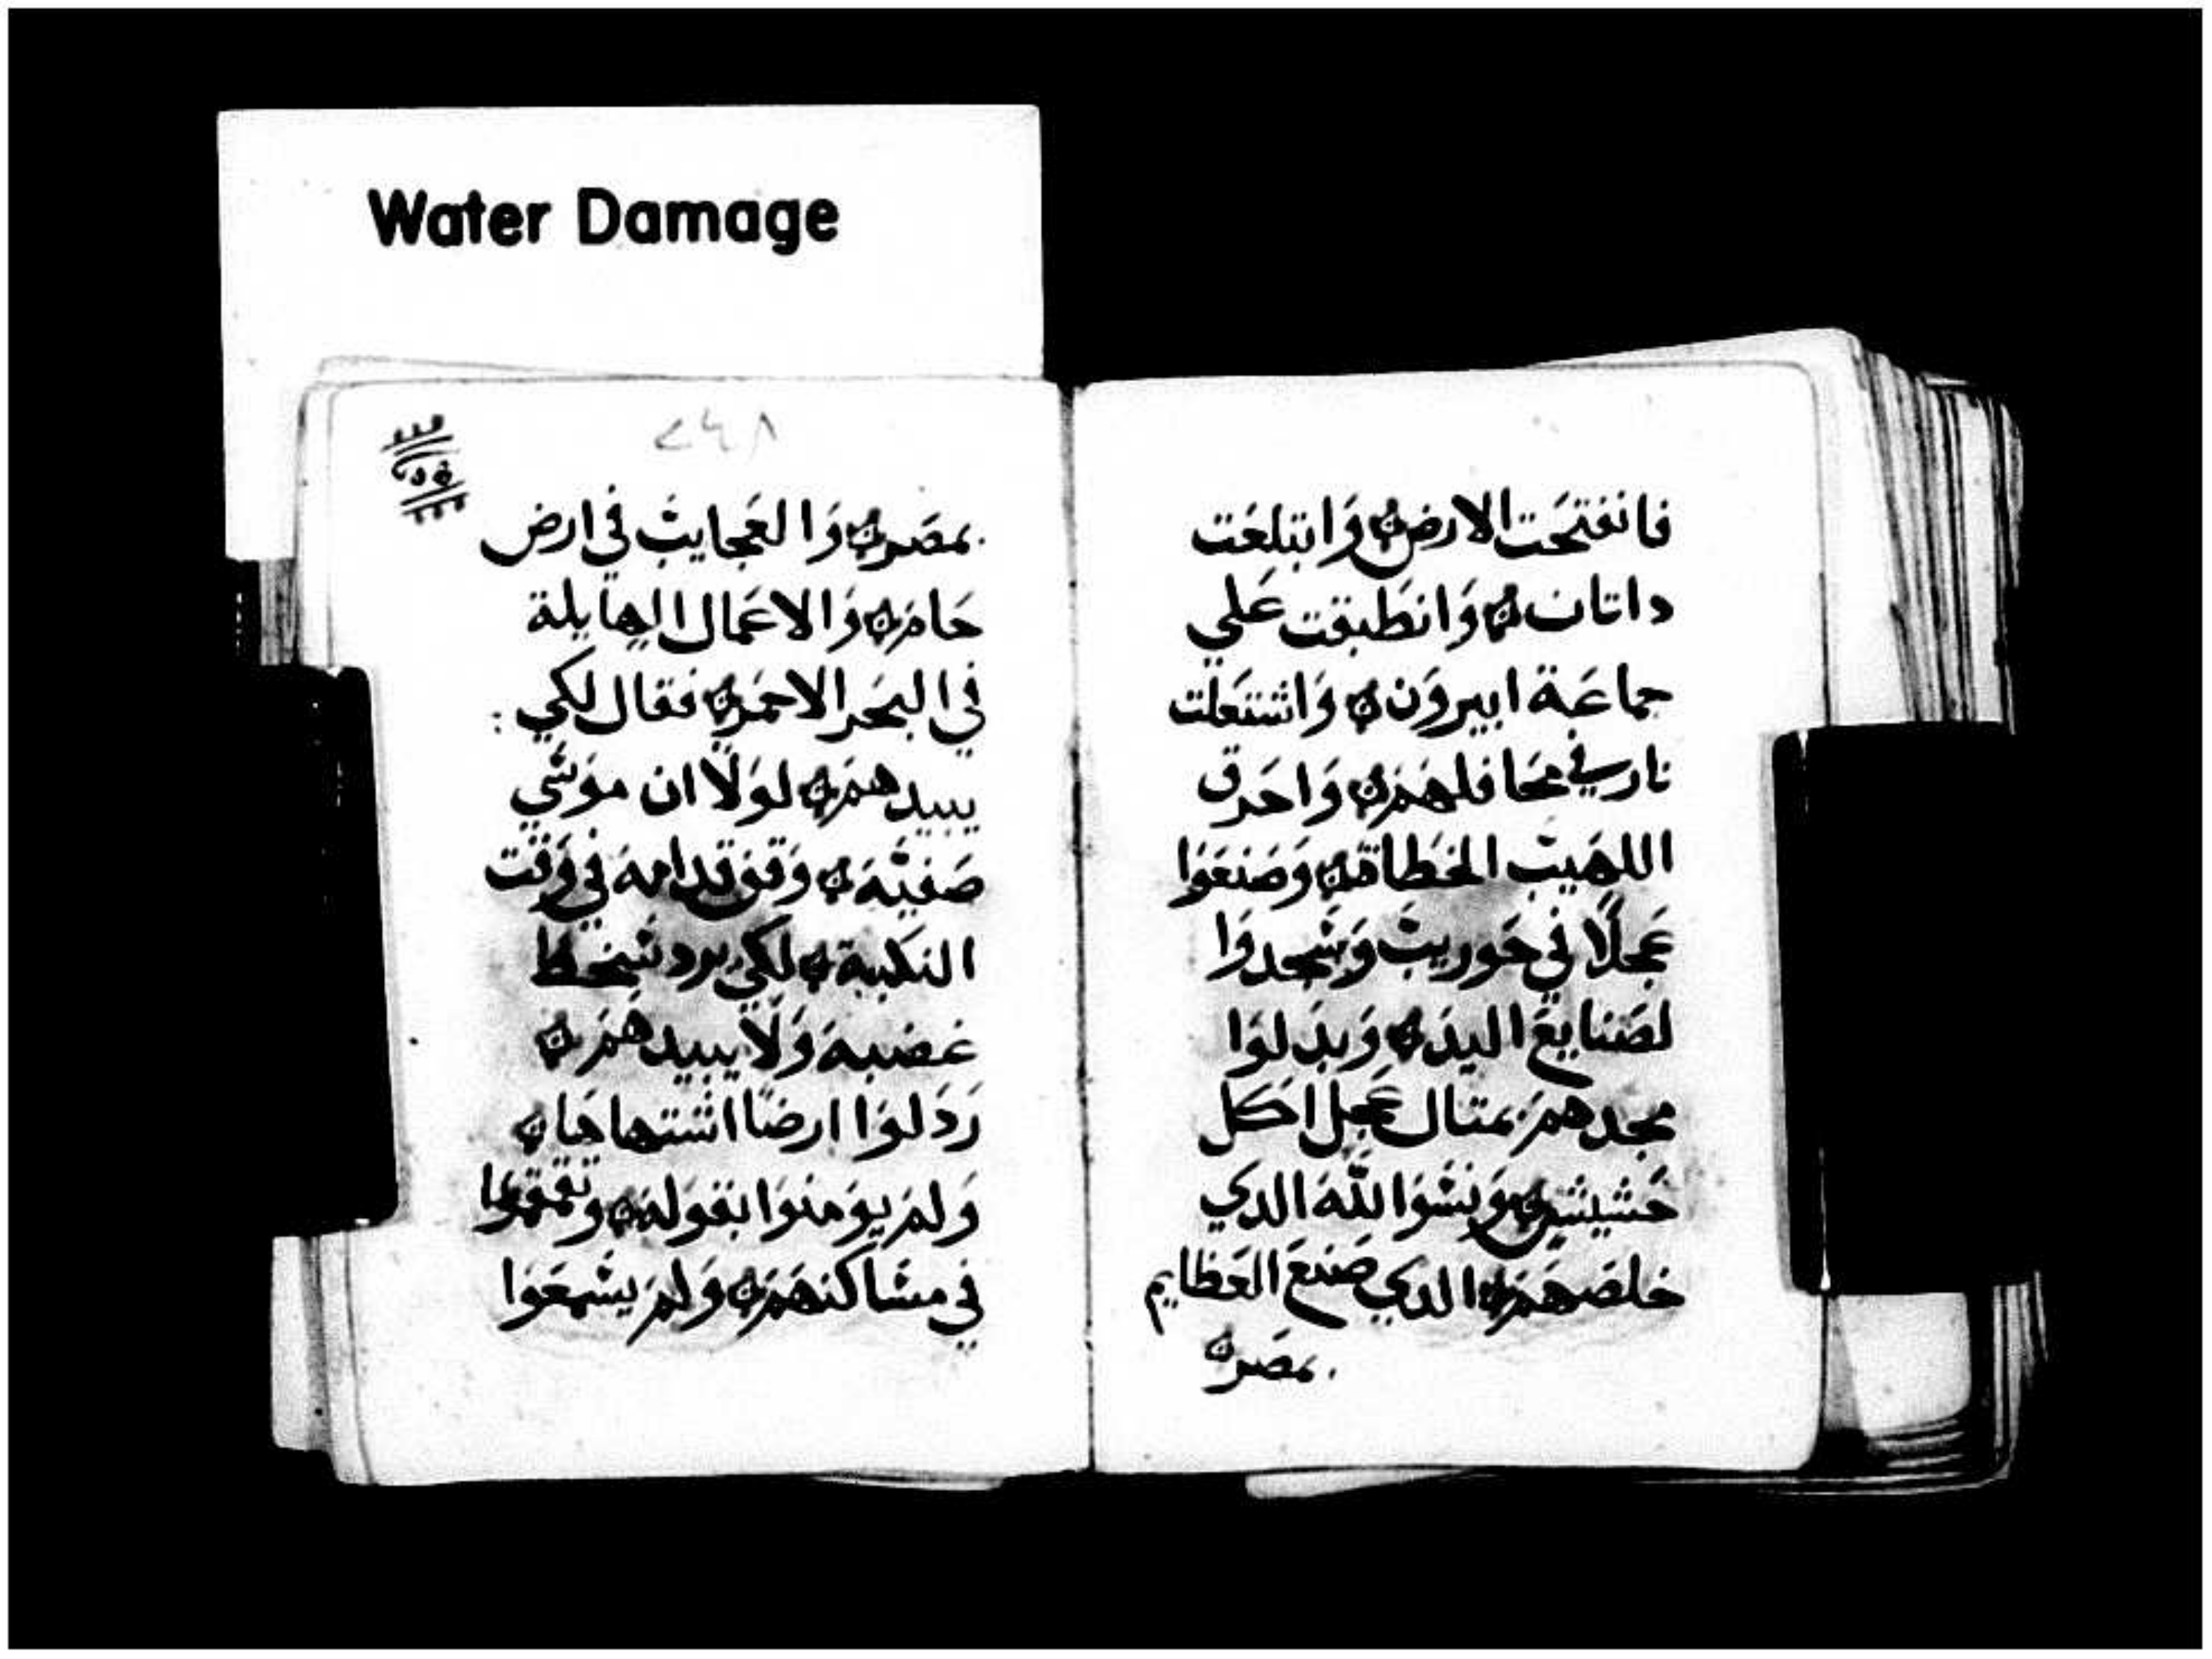 Water Damage
فانفتحت الارض وَابتلعَت
داتان وَانطبقت عَلي
جماعَة ابيروَن وَاشتعَلت
نار في محَافلهَم وَاحَرق
اللهَيب الخطاة وَصَنعَوا
عَجلًا في حَوريب وَسَجدوَا
لصَنايعَ اليدَ وَبدَلوَا
مجدهمَ بمتال عَجل اكل
حَشيش وَنسَوَا اللّهَ الدي
خلصَهمَ الدي صَنعَ العَظايم
بمصَر
٢٤٨
بمصَر وَالعَجايب في ارض
حَامَ وَالاعَمال الهايلة
في البحَر الاحمَر فقال لكي :
يبيدهمَ لوَلَا ان موَسَي
صَفيَّه وَقفَ قدامه في وَقت
النكبة لكي يرد سَخط
غضبه وَلَا يبيدهمَ
رَدَلوَا ارضًا اشتهاهَا
وَلمَ يوَمنوَا بقوَله وَتقمقموا
في مسَاكنهَمَ وَلمَ يسَمعَوَا